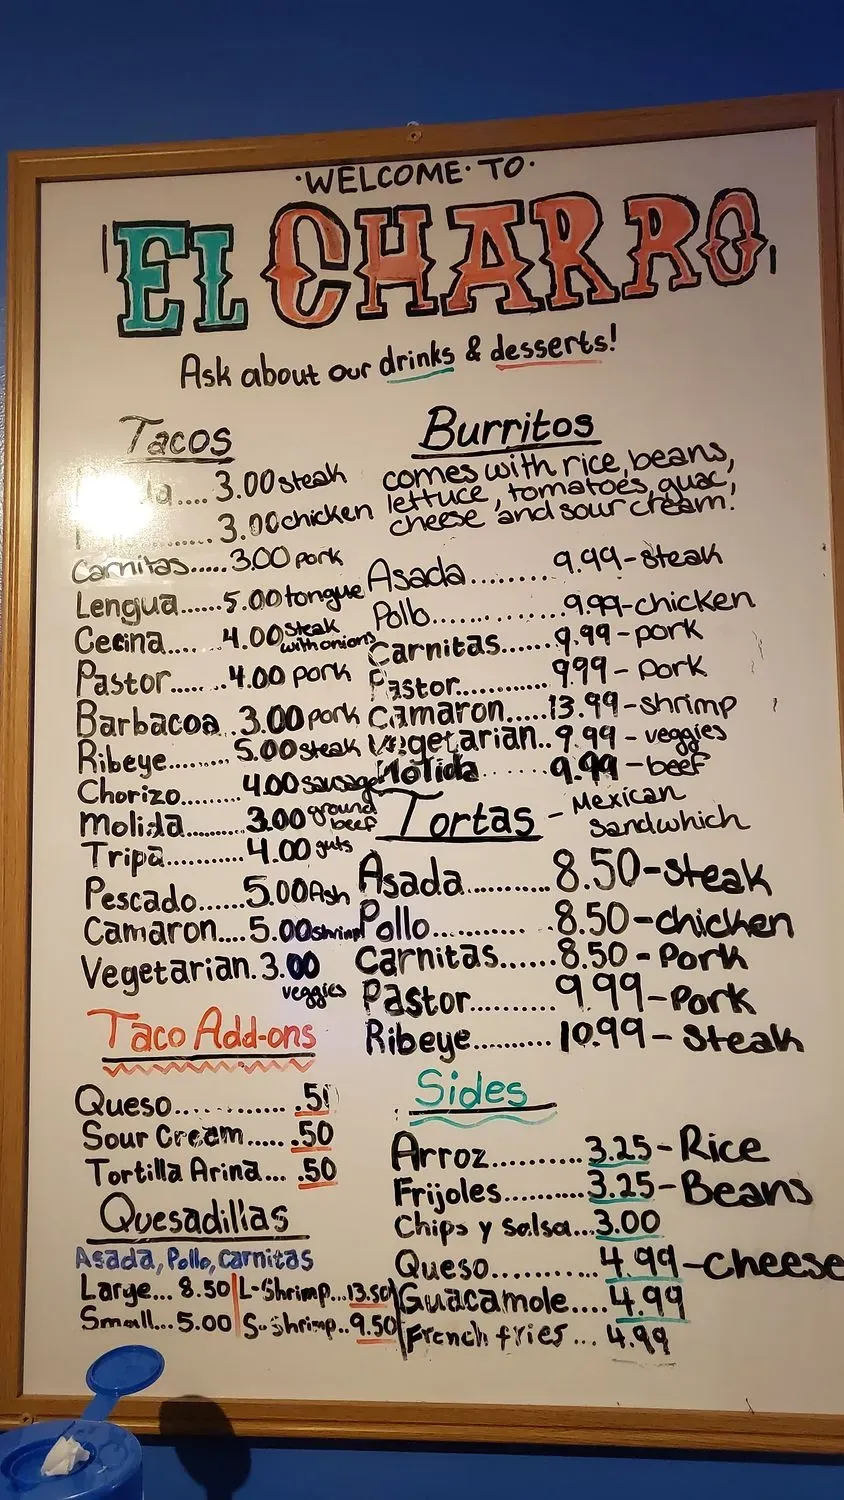 ·WELCOME· TO·
EL CHARRO
Ask about our drinks & desserts!
Tacos
3.00 steak
3.00 chicken
Carnitas......3.00 pork
Lengua......5.00 tongue
Cecina.... ..4.00 steak with onions
Pastor........4.00 pork
Barbacoa..3.00 pork
Ribeye.........5.00 steak
Chorizo.........4.00 sausage
Molida..........3.00 ground beef
Tripa...........4.00 guts
Pescado......5.00
Camaron....5.00 shrimp
Vegetarian.3.00
veggies
Taco Add-ons
Queso............
Sour Cream..... .50
Tortilla Arina... .50
Quesadillas
Asada, Pollo, carnitas
Large... 8.50 L-Shrimp...13.50
Small...5.00 S-shrimp..9.50
Burritos
comes with rice, beans,
lettuce, tomatoes, guac,
cheese and sour cream.
Asada........9.99-steak
Pollo.............9.99-chicken
Carnitas......9.99-pork
Pastor...........9.99-pork
Camaron.....13.99-shrimp
Vegetarian..9.99-veggies
Molida......9.99-beef
Tortas - Mexican
Sandwhich
Asada..........8.50-steak
Pollo...........8.50-chicken
Carnitas......8.50-Pork
Pastor..........9.99-Pork
Ribeye..........10.99-Steak
Sides
Arroz..........3.25-Rice
Frijoles..........3.25-Beans
Chips y salsa...3.00
Queso..........4.99-cheese
Guacamole....4.99
French fries... 4.99